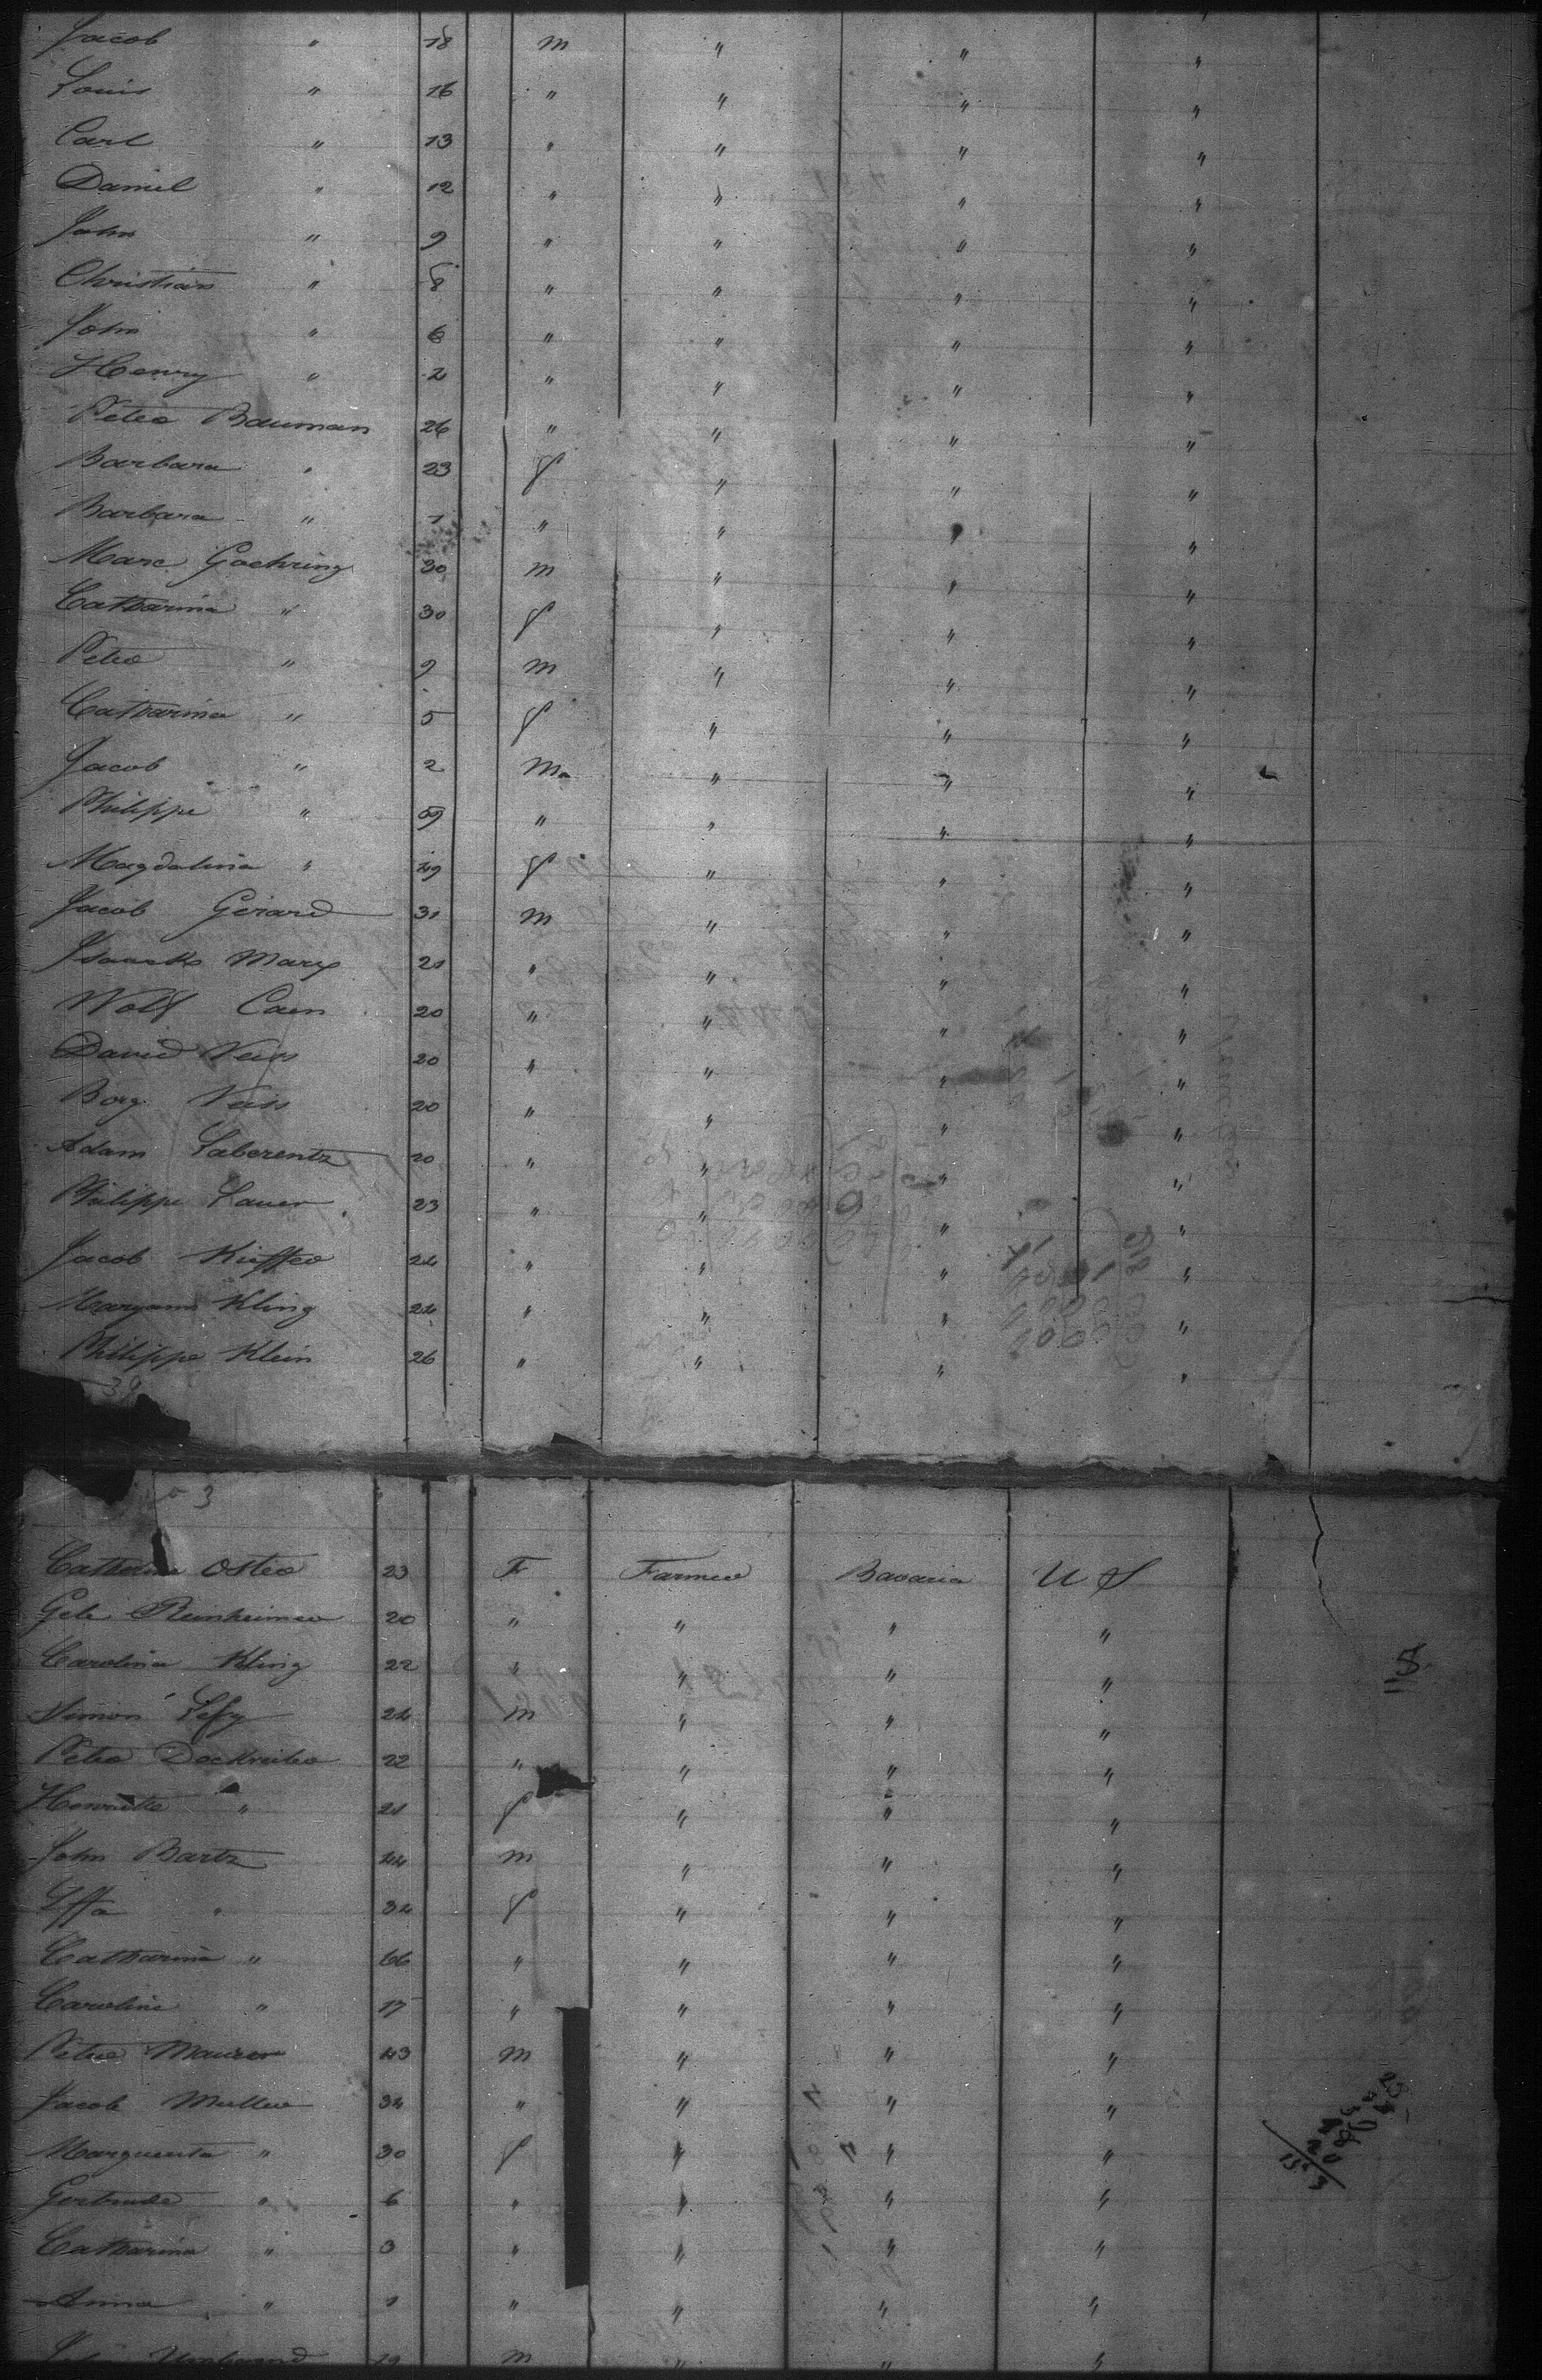 Jacob " 18 m " " "
Louis " 16 " " " "
Carl " 13 " " " "
Daniel " 12 " " " "
John " 9 " " " "
Christian " 8 " " " "
John " 6 " " " "
Henry " 2 " " " "
Peter Bauman 26 " " " "
Barbara " 23 f " " "
Barbara " 1 " " " "
Marc Goehring 30 m " " "
Catharina " 30 f " " "
Peter " 9 m " " "
Catharina " 5 f " " "
Jacob " 2 m " " "
Philippe " 59 " " " "
Magdalina " 49 f " " "
Jacob Gerard 31 m " " "
Marx 21 " " " "
Wolf Caen 20 " " " "
David Veiss 20 " " " "
Borg Veiss 20 " " " "
Adam Laberentz 20 " " " "
Philippe Lauer 23 " " " "
Jacob Kieffer 24 " " " "
Maryann Kling 24 " " " "
Philippe Klein 26 " " " "
38
3
Catherine Oster 23 F Farmer Bavaria U S
Gele Reinheimer 20 " " " "
Carolina Kling 22 " " " "
Simon Lefy 24 m " " "
Peter 22 " " " "
Henriette " 21 f " " "
John Bartz 44 m " " "
" 34 f " " "
Catharina " 66 " " " "
Caroline " 17 " " " "
Peter Maurer 43 m " " "
Jacob Muller 34 " " " "
Marguerita " 30 f " " "
Gertrude " 6 " " " "
Catharina " 3 " " " "
Anna " 1 " " " "
m " " "
115